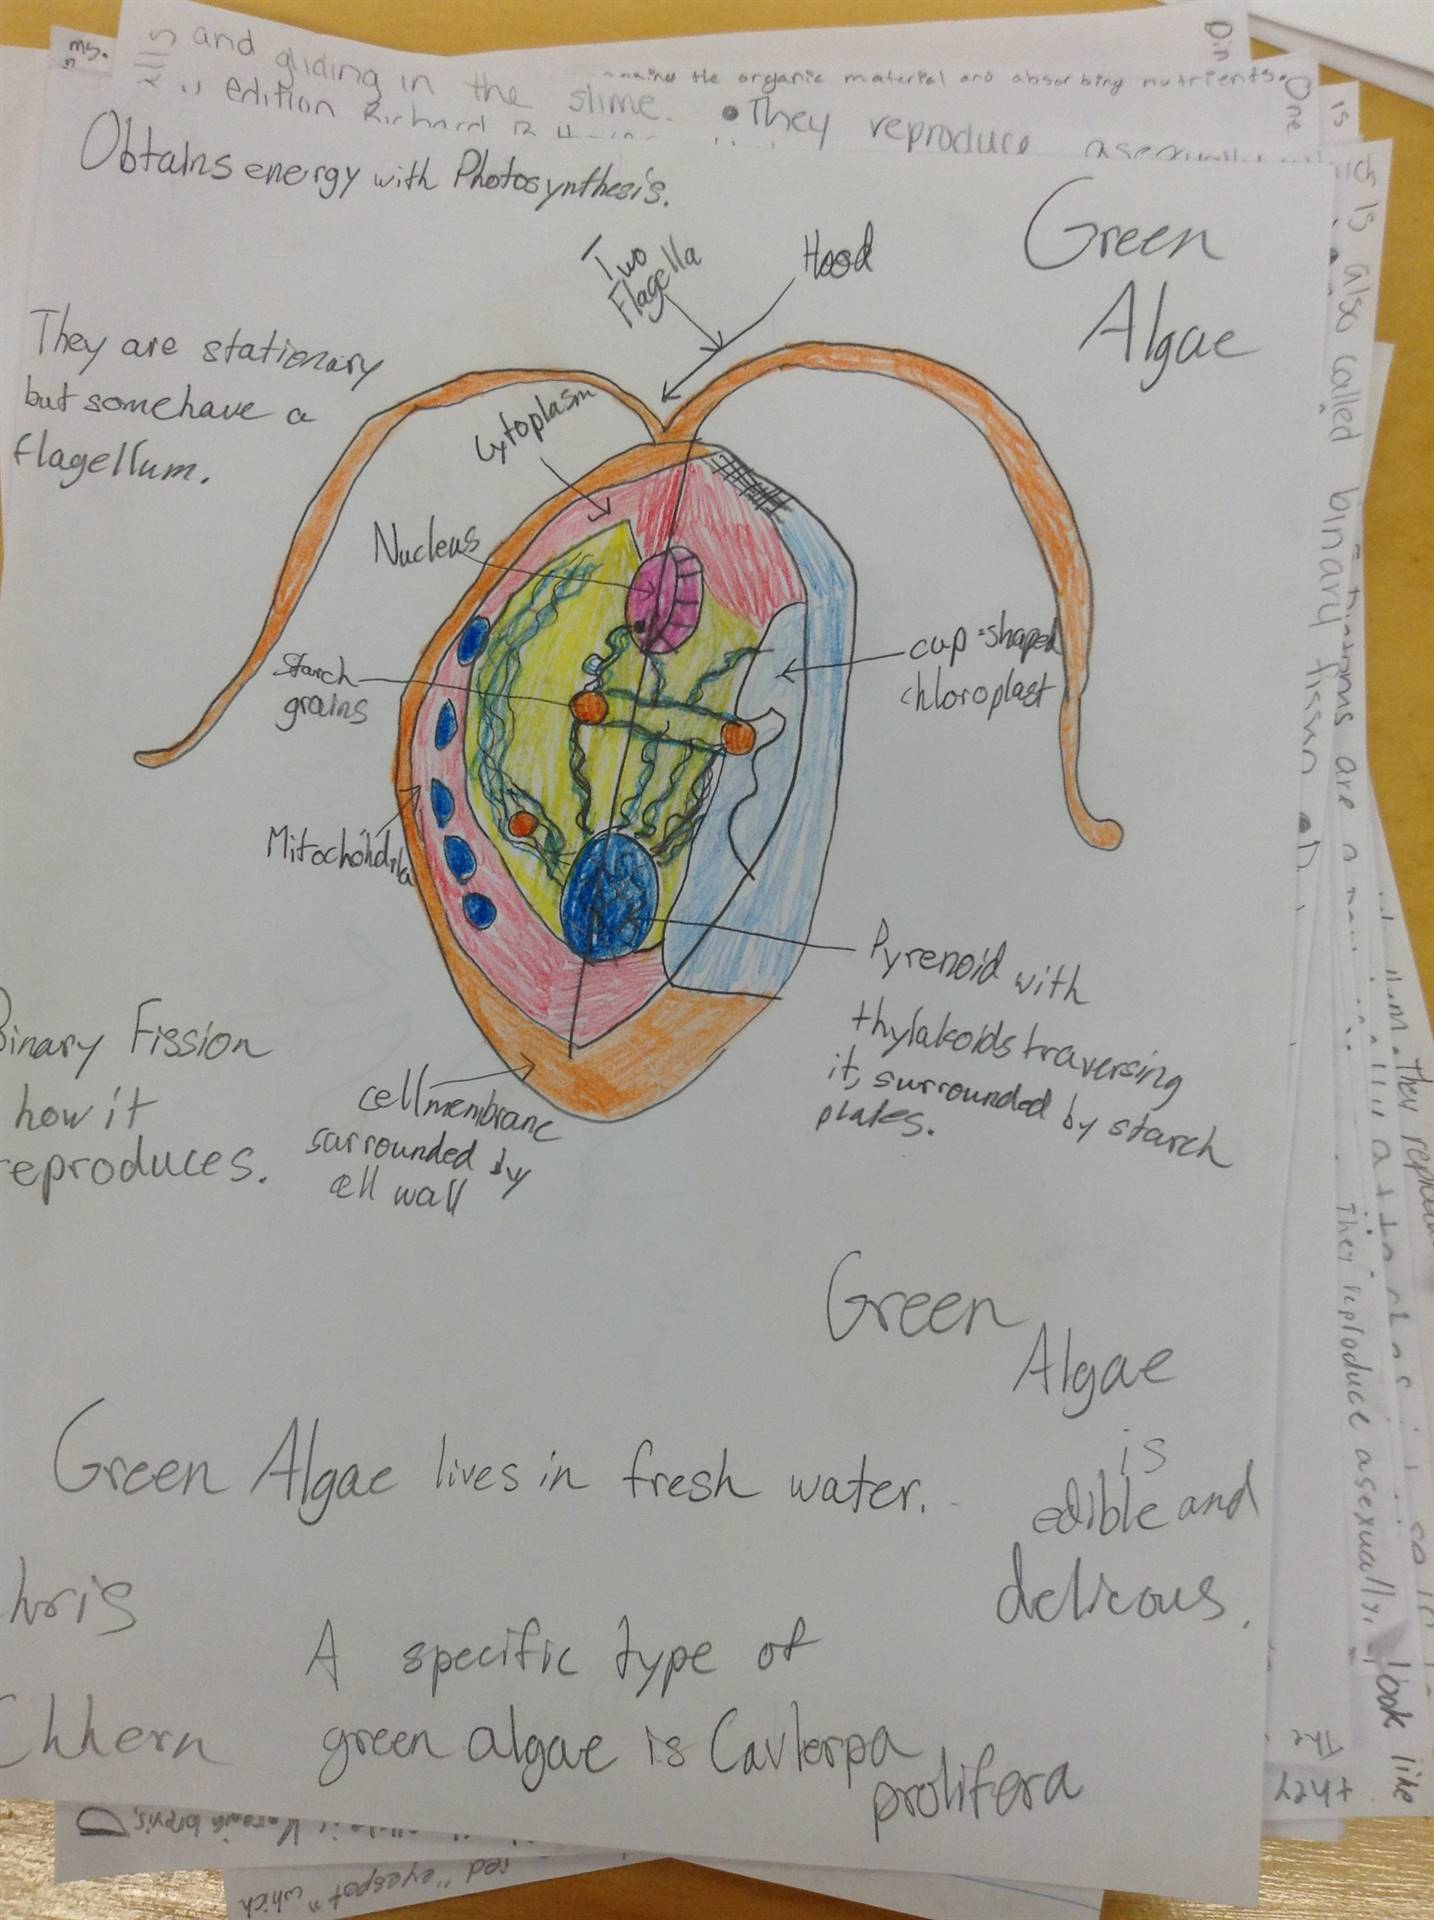 ms.
and gliding in the slime.
edition Richard
the organic material and absorbing nutrients.
They reproduce asexually
Din
One
is
Obtains energy with Photosynthesis.
Green
Algae
Two
Flagella
Hood
They are stationary
but some have a
flagellum.
Cytoplasm
Nucleus
Starch
grains
cup-shaped
chloroplast
Mitochondria
Pyrenoid with
thylakoids traversing
it, surrounded by starch
plates.
Binary Fission
how it
reproduces.
cell membrane
surrounded by
cell wall
Green
Algae
is
edible and
delicous.
Green Algae lives in fresh water.
hris
Chhern
A specific type of
green algae is Cavlerpa
prolifera
is also called binary fission
are a
They reproduce asexually.
look like
The
they
red "eyespot" which